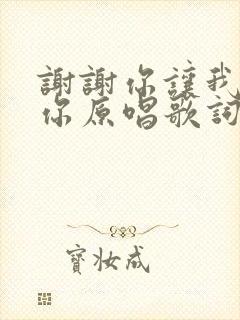 謝謝你讓我
你原唱歌詞
寶妝成